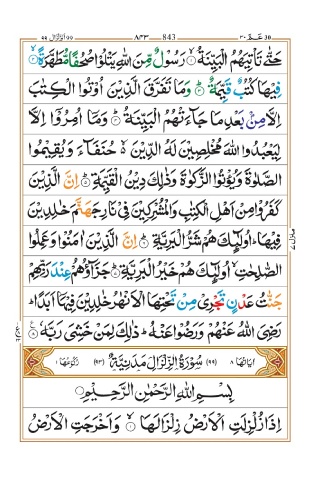 عمّ ٣٠ 843 ٨٤٣ الزلزال ٩٩
حَتّٰى تَاْتِيَهُمُ الْبَيِّنَةُ ۙ﴿۱﴾ رَسُوْلٌ مِّنَ اللّٰهِ يَتْلُوْا صُحُفًا مُّطَهَّرَةً ۙ﴿۲﴾
فِيْهَا كُتُبٌ قَيِّمَةٌ ؕ﴿۳﴾ وَمَا تَفَرَّقَ الَّذِيْنَ اُوْتُوا الْكِتٰبَ
اِلَّا مِنْۢ بَعْدِ مَا جَآءَتْهُمُ الْبَيِّنَةُ ؕ﴿۴﴾ وَمَاۤ اُمِرُوْۤا اِلَّا
لِيَعْبُدُوا اللّٰهَ مُخْلِصِيْنَ لَهُ الدِّيْنَ ۙ۬ حُنَفَآءَ وَيُقِيْمُوا
الصَّلٰوةَ وَيُؤْتُوا الزَّكٰوةَ وَذٰلِكَ دِيْنُ الْقَيِّمَةِ ؕ﴿۵﴾ اِنَّ الَّذِيْنَ
كَفَرُوْا مِنْ اَهْلِ الْكِتٰبِ وَالْمُشْرِكِيْنَ فِيْ نَارِ جَهَنَّمَ خٰلِدِيْنَ
فِيْهَا ؕ اُولٰٓئِكَ هُمْ شَرُّ الْبَرِيَّةِ ؕ﴿۶﴾ اِنَّ الَّذِيْنَ اٰمَنُوْا وَعَمِلُوا
الصّٰلِحٰتِ ۙ اُولٰٓئِكَ هُمْ خَيْرُ الْبَرِيَّةِ ؕ﴿۷﴾ جَزَآؤُهُمْ عِنْدَ رَبِّهِمْ
جَنّٰتُ عَدْنٍ تَجْرِيْ مِنْ تَحْتِهَا الْاَنْهٰرُ خٰلِدِيْنَ فِيْهَاۤ اَبَدًا ؕ
رَضِيَ اللّٰهُ عَنْهُمْ وَرَضُوْا عَنْهُ ؕ ذٰلِكَ لِمَنْ خَشِيَ رَبَّهٗ ﴿۸﴾
اٰيَاتُهَا ٨ (٩٩) سُوْرَةُ الزِّلْزَالِ مَدَنِيَّةٌ (٩٣) رُكُوْعُهَا ١
بِسْمِ اللّٰهِ الرَّحْمٰنِ الرَّحِيْمِ
اِذَا زُلْزِلَتِ الْاَرْضُ زِلْزَالَهَا ۙ﴿۱﴾ وَاَخْرَجَتِ الْاَرْضُ